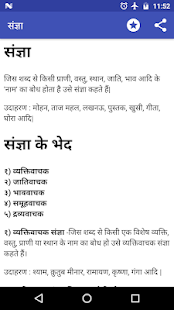 11:52
संज्ञा
संज्ञा
जिस शब्द से किसी प्राणी, वस्तु, स्थान, जाति, भाव आदि के
'नाम' का बोध होता है उसे संज्ञा कहते हैं|
उदाहरण : मोहन, ताज महल, लखनऊ, पुस्तक, खुसी, गीता,
घोरा आदि|
संज्ञा के भेद
१) व्यक्तिवाचक
२) जातिवाचक
३) भाववाचक
४) समूहवाचक
५) द्रव्यवाचक
१) व्यक्तिवाचक संज्ञा -जिस शब्द से किसी एक विशेष व्यक्ति,
वस्तु, प्राणी या स्थान के नाम का बोध हो उसे व्यक्तिवाचक संज्ञा
कहते हैं।
उदाहरण : श्याम, क़ुतुब मीनार, रामायण, कृष्णा, गंगा आदि |